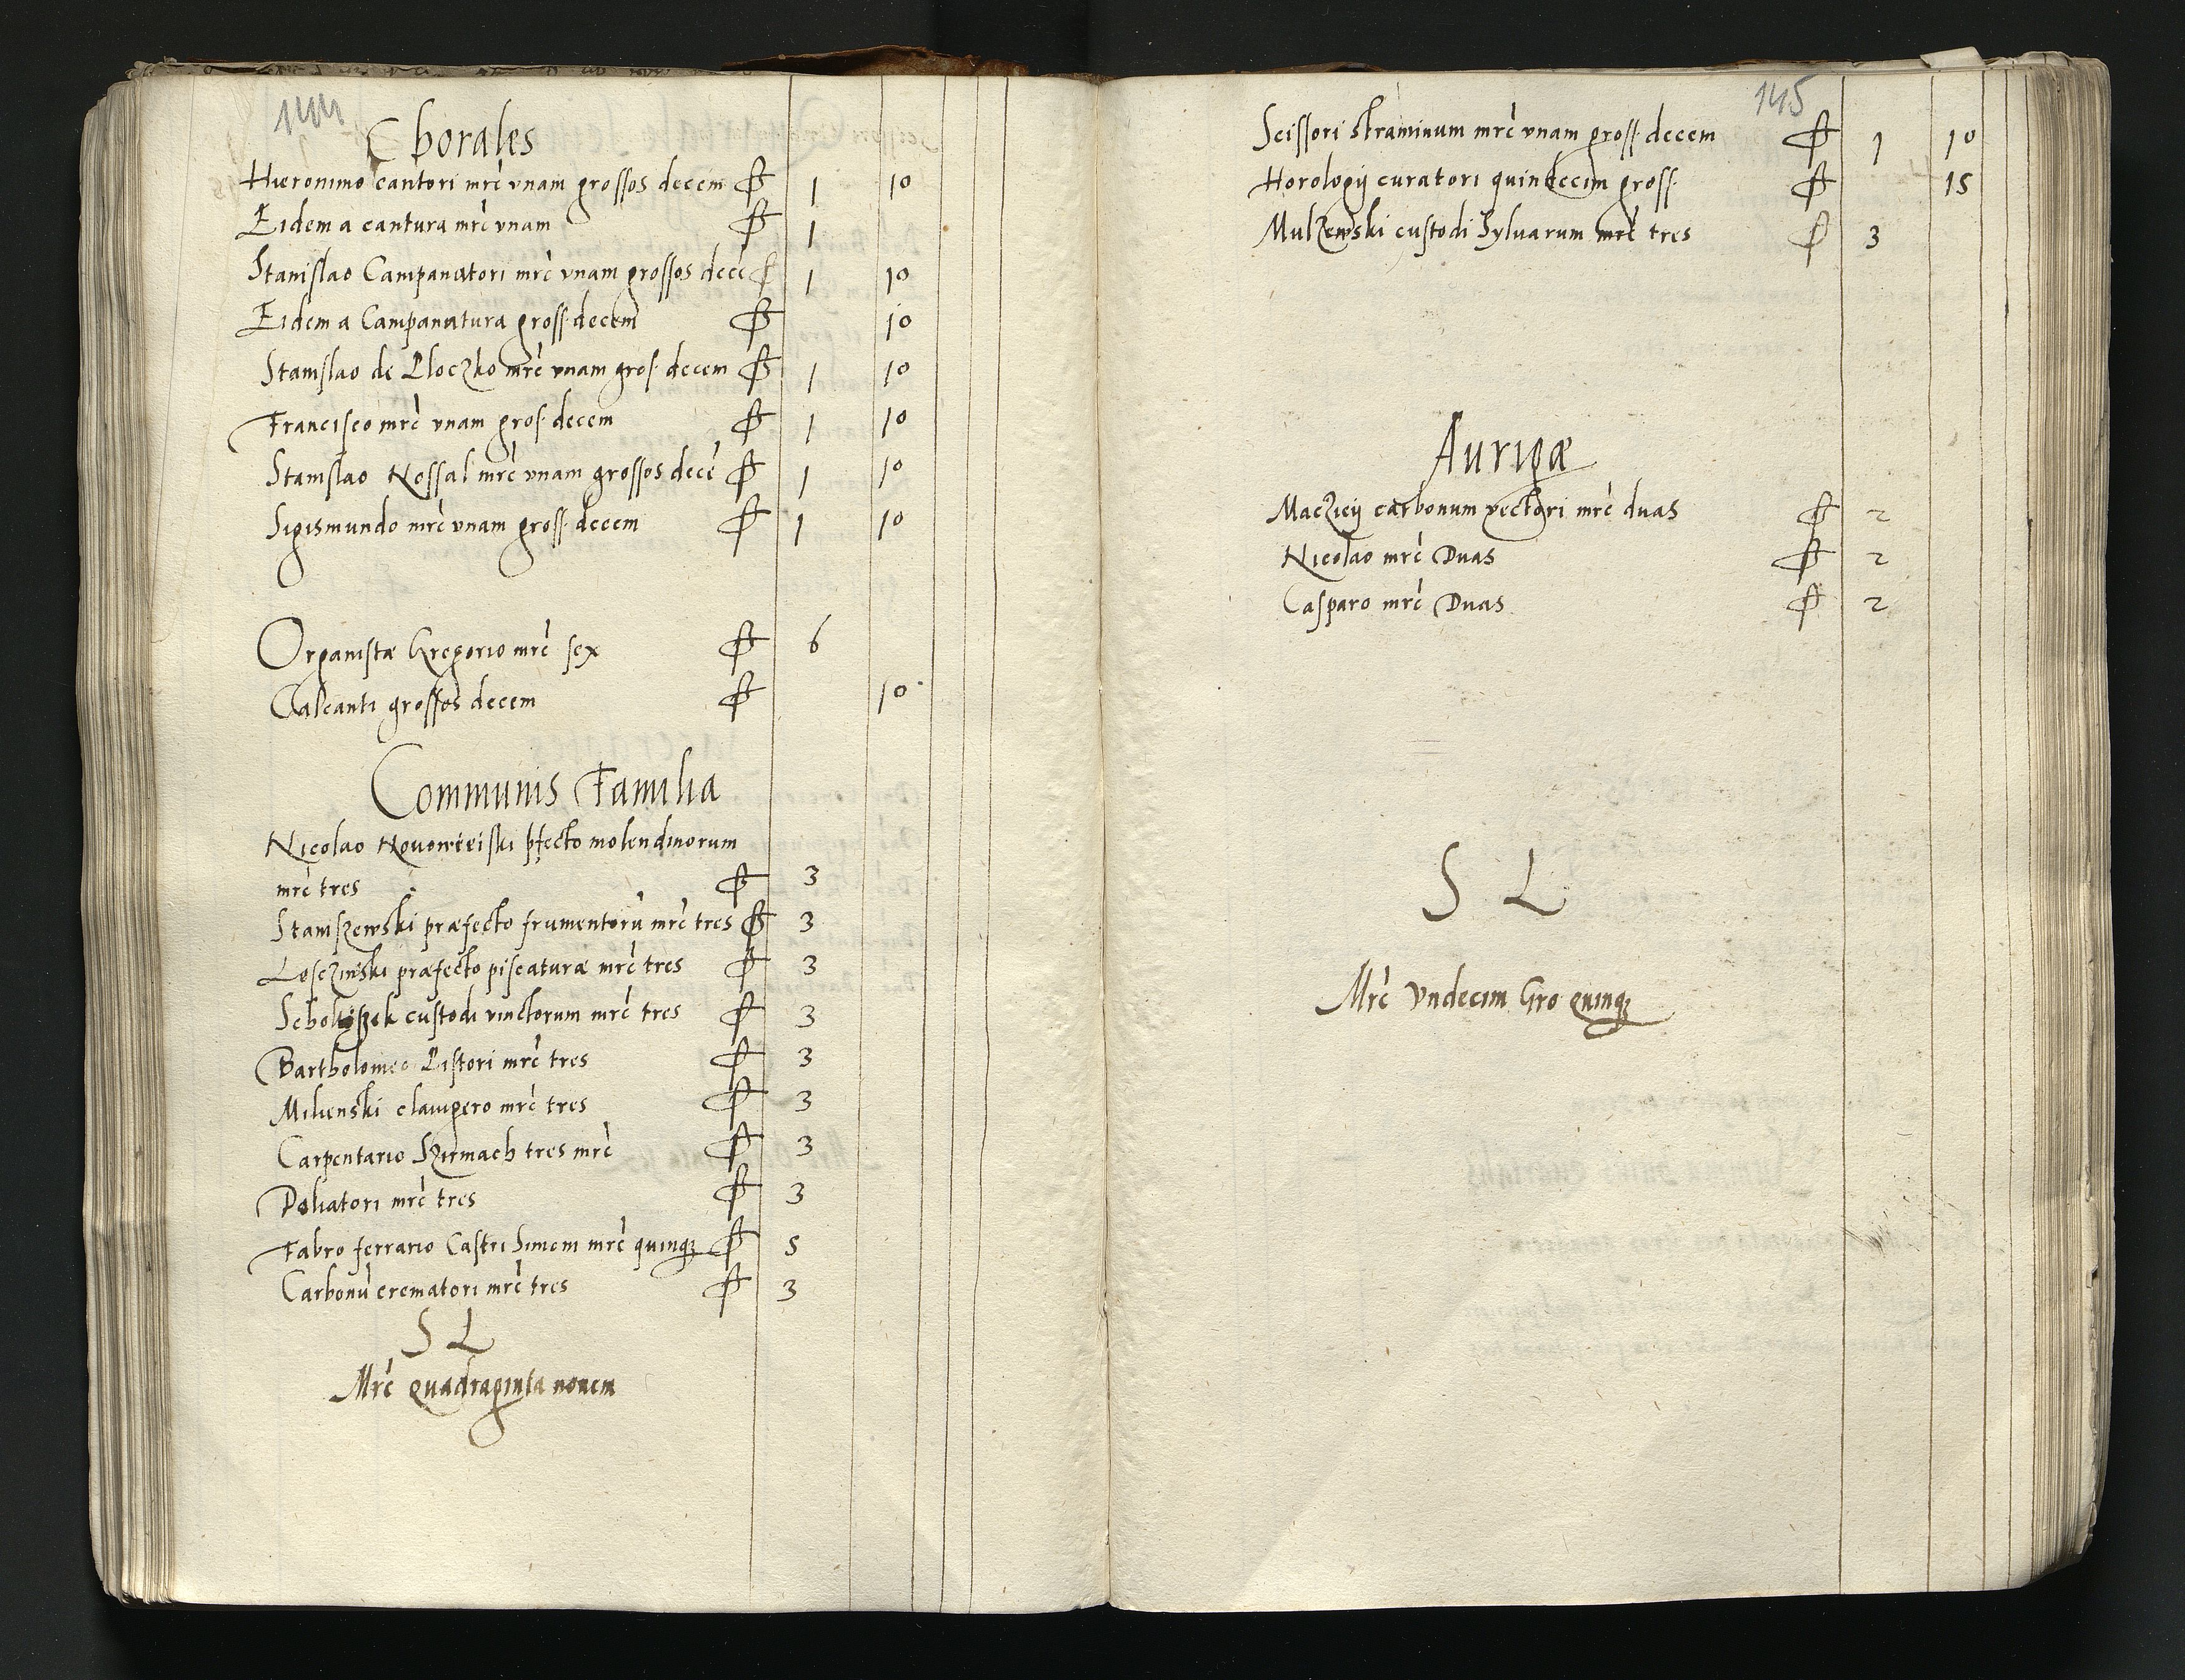 144
Chorales
Hieronimo cantori mrc̃ vnam grossos decem ꝑ 1 10
Eidem a cantura mrc̃ vnam ꝑ 1
Stanislao Campanatori mrc̃ vnam grossos decē ꝑ 1 10
Eidem a Campanatura gross. decem ꝑ 10
Stanislao de Ploczko mrc̃ vnam gros. decem ꝑ 1 10
Francisco mrc̃ vnam gros. decem ꝑ 1 10
Stanislao Nossal mrc̃ vnam grossos decē ꝑ 1 10
Sigismundo mrc̃ vnam gross. decem ꝑ 1 10
Organistæ Gregorio mrc̃ sex ꝑ 6
Calcanti grossos decem ꝑ 10
Communis Familia
Nicolao p̄fecto molendinorum
mrc̃ tres ꝑ 3
Staniszewski præfecto frumentorū mrc̃ tres ꝑ 3
Losczinski præfecto piscaturæ mrc̃ tres ꝑ 3
Scholtiszek custodi vinctorum mrc̃ tres ꝑ 3
Bartholomeo Pistori mrc̃ tres ꝑ 3
Milienski clauigero mrc̃ tres ꝑ 3
Carpentario Szirmach tres mrc̃ ꝑ 3
Doliatori mrc̃ tres ꝑ 3
Fabro ferrario Castri Simoni mrc̃ quinqꝫ ꝑ 5
Carbonū crematori mrc̃ tres ꝑ 3
S L
Mrc̃ quadraginta nouem
145
Scissori straminum mrc̃ vnam gross. decem ꝑ 1 10
Horologij curatori quindecim gross. ꝑ 15
Mulzewski custodi Syluarum mrc̃ tres ꝑ 3
Aurigæ
Macziey carbonum vectori mrc̃ duas ꝑ 2
Nicolao mrc̃ Duas ꝑ 2
Casparo mrc̃ Duas ꝑ 2
S L
Mrc̃ Vndecim Gro quinqꝫ